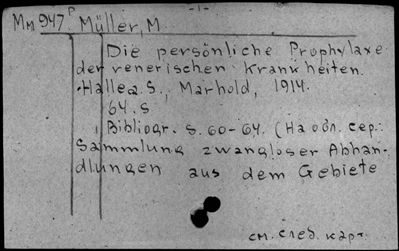 -1-
Мм 947 р Müller, M.
Die persönliche Prophylaxe
der venerischen Krankheiten.
Halle a. S., Marhold, 1914.
64. S
Bibliogr. S. 60-64. (На обл. сер.:
Sammlung zwangloser Abhan-
dlungen aus dem Gebiete
см. след. карт.